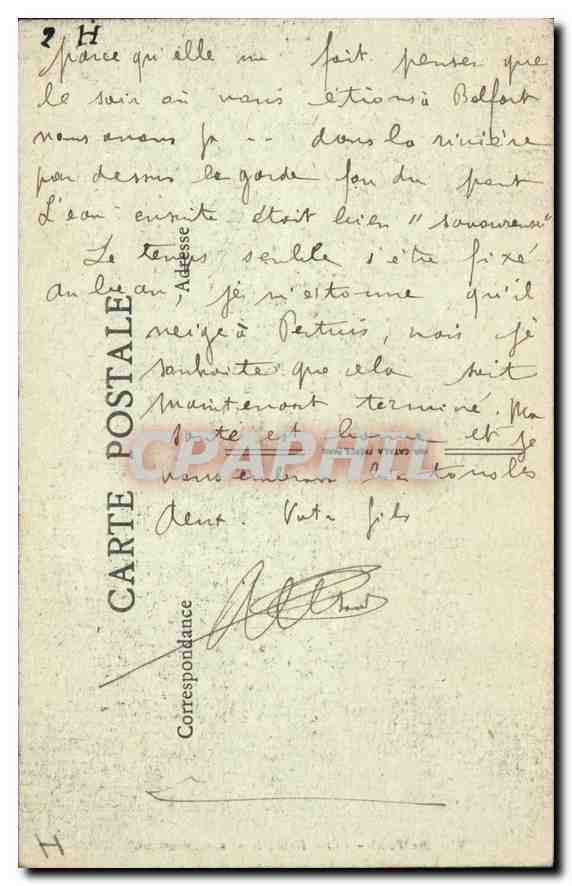 2 H
parce qu'elle me fait penser que
le soir où nous étions à Belfort
nous avons p -- dans la rivière
par dessus le garde fou du pont
L'eau ensuite était bien "savoureuse"
Le temps semble s'être fixé
au beau, je m'étonne qu'il
neige à Pertuis, mais je
souhaite que cela soit
maintenant terminé. Ma
santé est bonne et je
vous embrasse tous les
deux. Votre fils
CARTE POSTALE
Adresse
Correspondance
CPAPHIL
CATALA FRÈRES PARIS
H